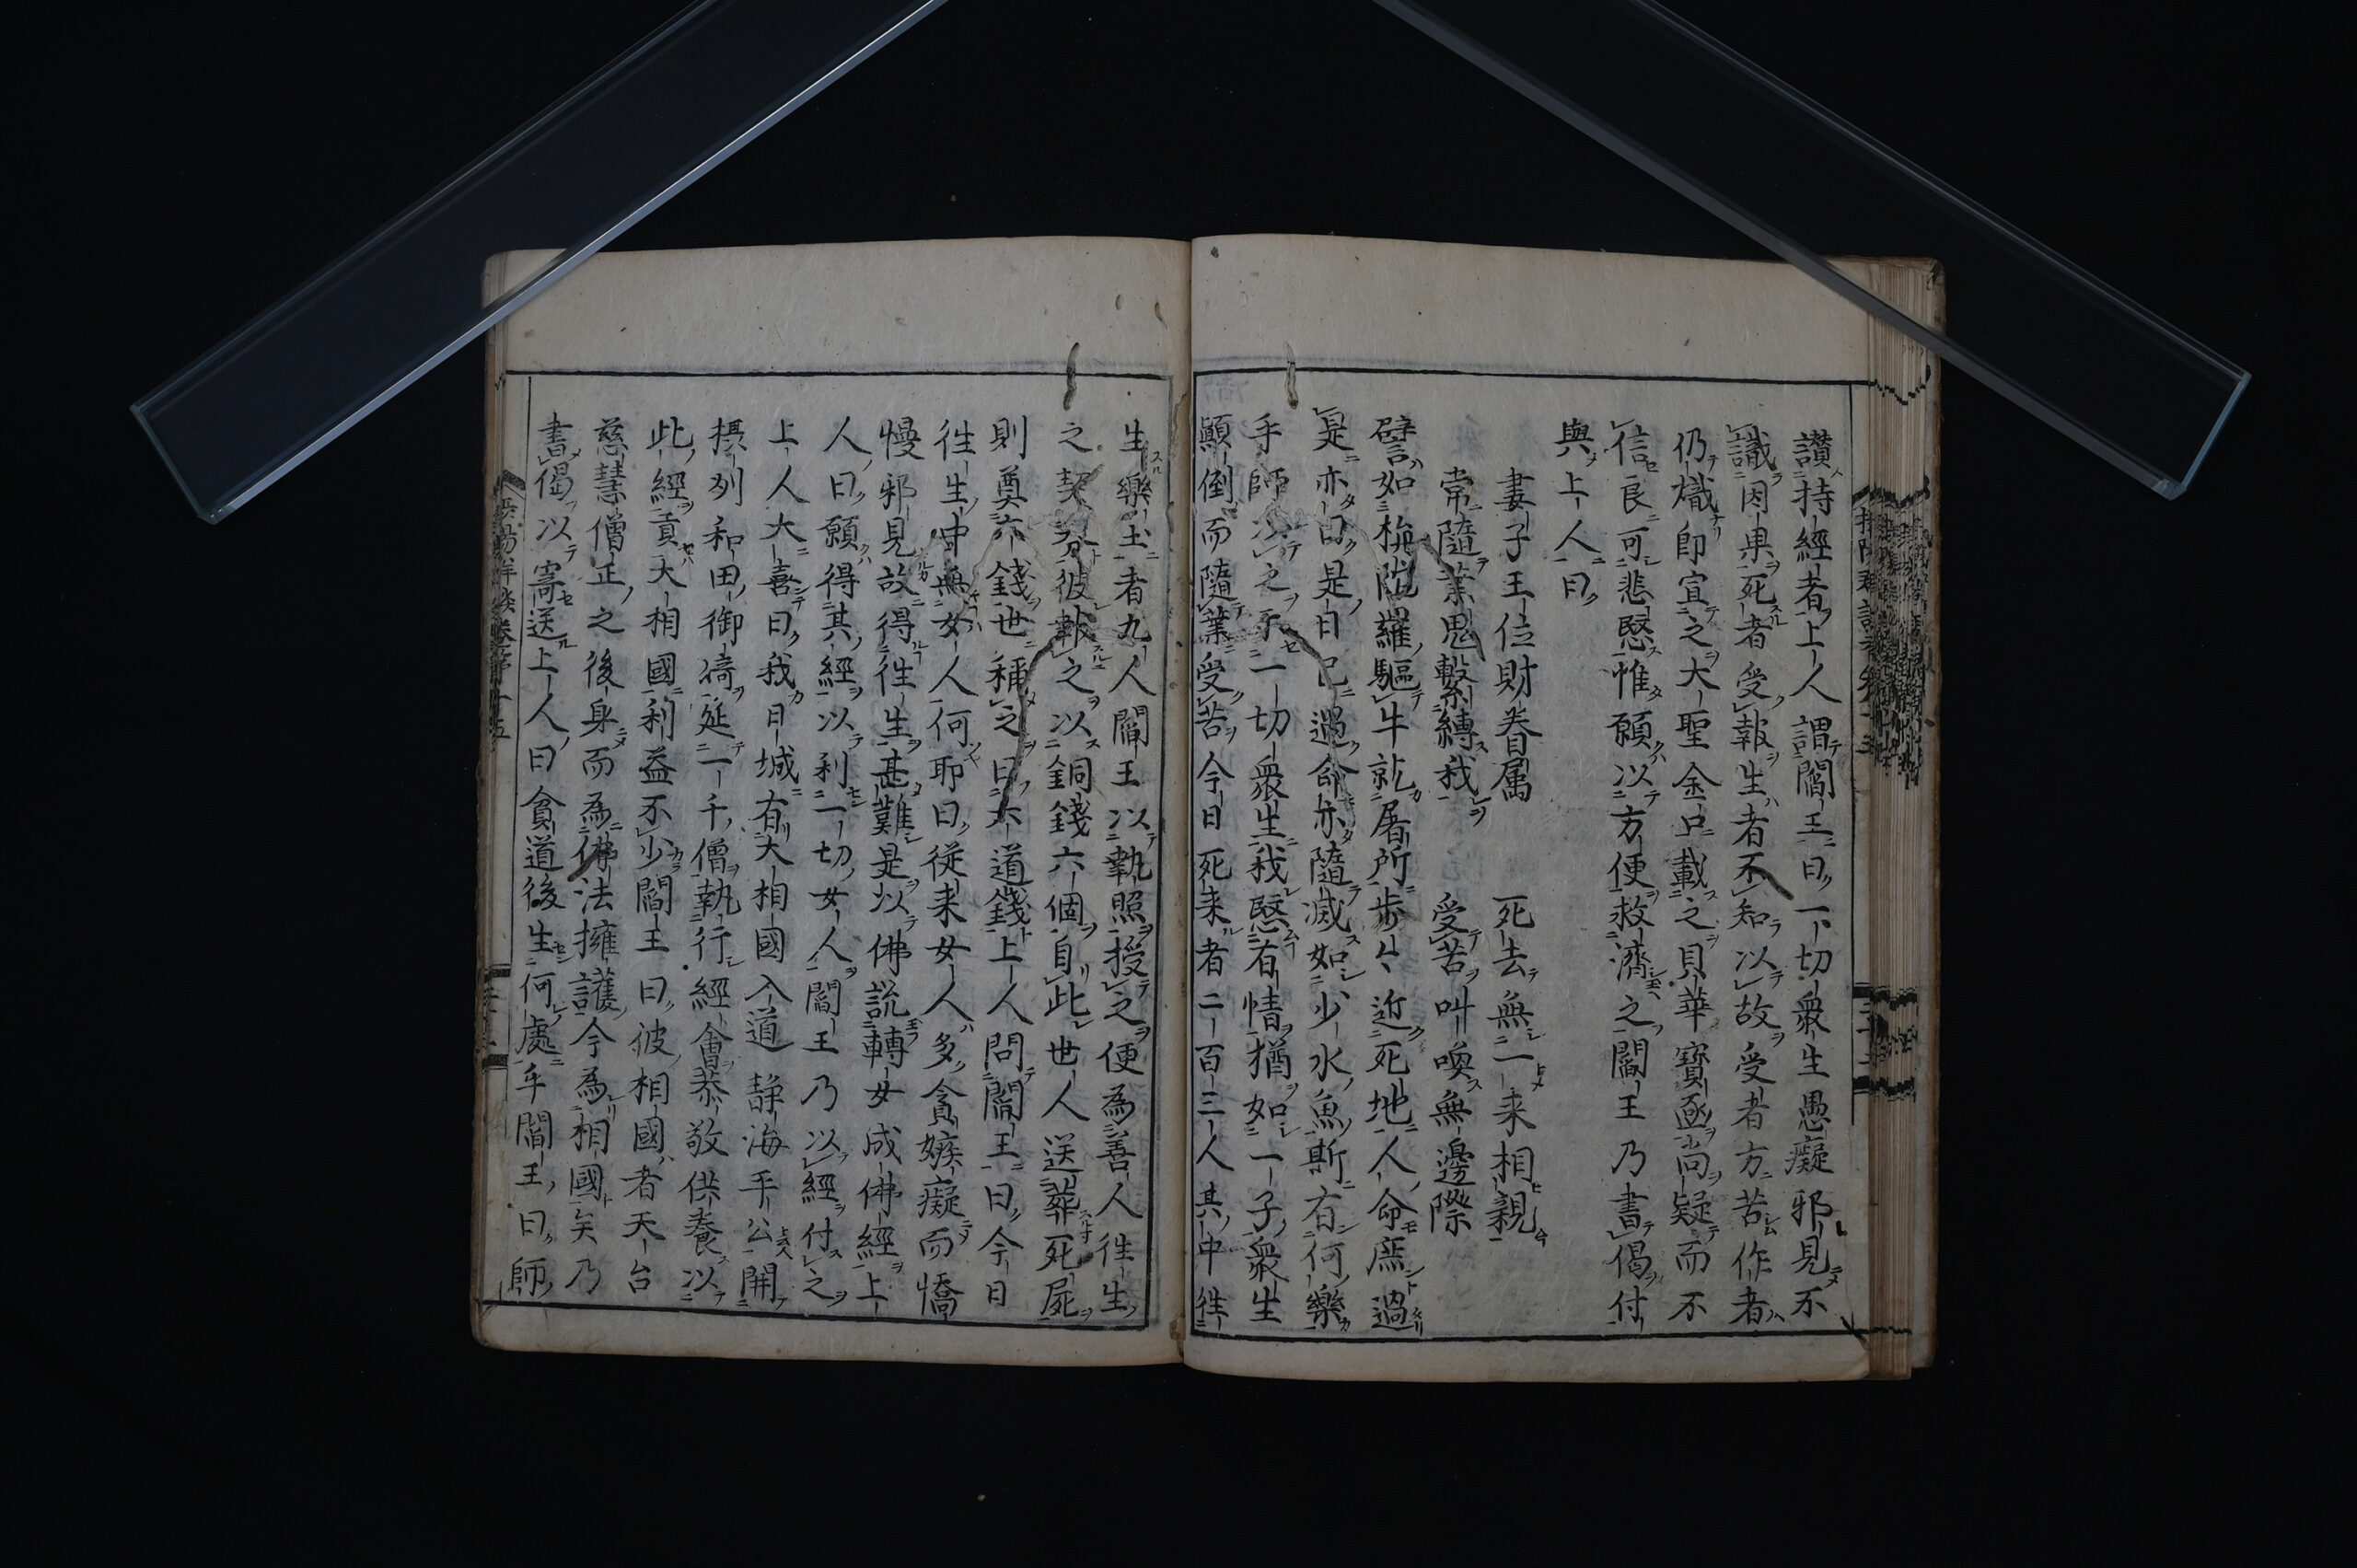 讃持經者上人謂閻王曰一切衆生愚癡邪見不
識因果死者受報生者不知以故受者方苦作者
仍熾即宣之大聖金口載之貝華寳函尚疑而不
信良可悲愍惟願以方便救濟之閻王乃書偈付
與上人曰
妻子王位財眷属 死去無一来相親
常隨業鬼繫縛我 受苦叫喚無邊際
譬如栴陀羅驅牛就屠所歩々近死地人命𢉖過
是亦曰是日已過命亦隨滅如少水魚斯有何樂
手師以之示一切衆生我愍有情猶如一子衆生
顛倒而隨業受苦今日死来者二百三人其中徃
生樂土者九人閻王以執照授之便為善人徃生
之契券彼報之以銅錢六個自此世人送葬死屍
則奠六錢世稱之曰六道錢上人問閻王曰今日
徃生中無女人何耶曰従来女人多貪嫉癡而憍
慢邪見故得徃生甚難是以佛説轉女成佛經上
人曰願得其經以利一切女人閻王乃以經付之
上人大喜曰我日城有大相國入道静海平公開
攝列和田御﨑延一千僧執行經會恭敬供養以
此經貢大相國利益不少閻王曰彼相國者天台
慈慧僧正之後身而為佛法擁護今為相國矣乃
書偈以寄送上人曰貧道後生何處乎閻王曰師